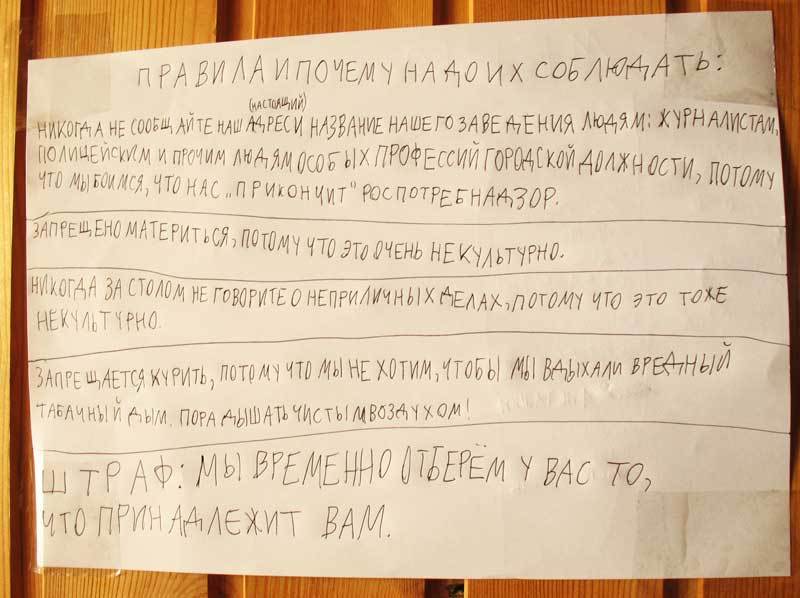 ПРАВИЛА И ПОЧЕМУ НАДО ИХ СОБЛЮДАТЬ:
(НАСТОЯЩИЙ)
НИКОГДА НЕ СООБЩАЙТЕ НАШ АДРЕС И НАЗВАНИЕ НАШЕГО ЗАВЕДЕНИЯ ЛЮДЯМ: ЖУРНАЛИСТАМ,
ПОЛИЦЕЙСКИМ И ПРОЧИМ ЛЮДЯМ ОСОБЫХ ПРОФЕССИЙ ГОРОДСКОЙ ДОЛЖНОСТИ, ПОТОМУ
ЧТО МЫ БОИМСЯ, ЧТО НАС „ПРИКОНЧИТ" РОСПОТРЕБНАДЗОР.
ЗАПРЕЩЕНО МАТЕРИТЬСЯ, ПОТОМУ ЧТО ЭТО ОЧЕНЬ НЕКУЛЬТУРНО.
НИКОГДА ЗА СТОЛОМ НЕ ГОВОРИТЕ О НЕПРИЛИЧНЫХ ДЕЛАХ, ПОТОМУ ЧТО ЭТО ТОЖЕ
НЕКУЛЬТУРНО.
ЗАПРЕЩАЕТСЯ КУРИТЬ, ПОТОМУ ЧТО МЫ НЕ ХОТИМ, ЧТОБЫ МЫ ВДЫХАЛИ ВРЕДНЫЙ
ТАБАЧНЫЙ ДЫМ. ПОРА ДЫШАТЬ ЧИСТЫМ ВОЗДУХОМ!
ШТРАФ: МЫ ВРЕМЕННО ОТБЕРЁМ У ВАС ТО,
ЧТО ПРИНАДЛЕЖИТ ВАМ.